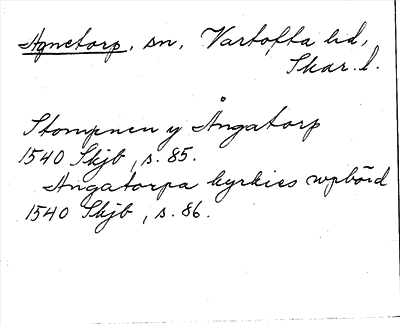 Agnetorp, sn, Vartofta hd,
Skar. l.
Stompnen y Ångatorp
1540 Skjb, s. 85.
Angatorpa kyrkies wpbörd
1540 Skjb, s. 86.